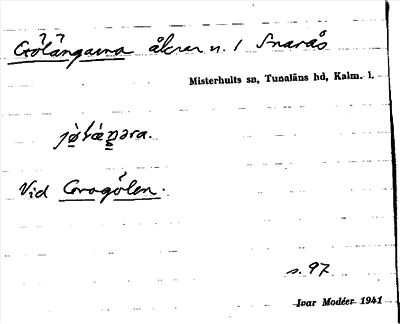 Gölängarna åkrar n. 1 Snarås
Misterhults sn, Tunaläns hd, Kalm. l.
Vid Gragölen.
s. 97
Ivar Modéer 1941